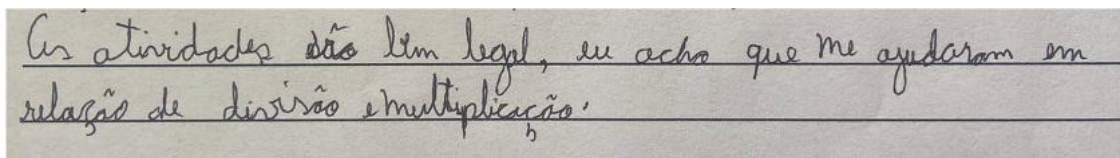 As atividades são bem legal, eu acho que me ajudaram em
relação de divisão e multiplicação.